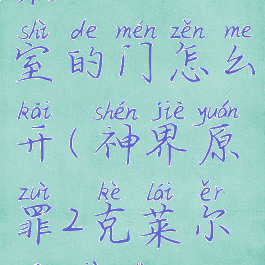 shì de mén zěn me
室的门怎么
kāi shén jiè yuán
开(神界原
zuì kè lái ěr
罪2克莱尔